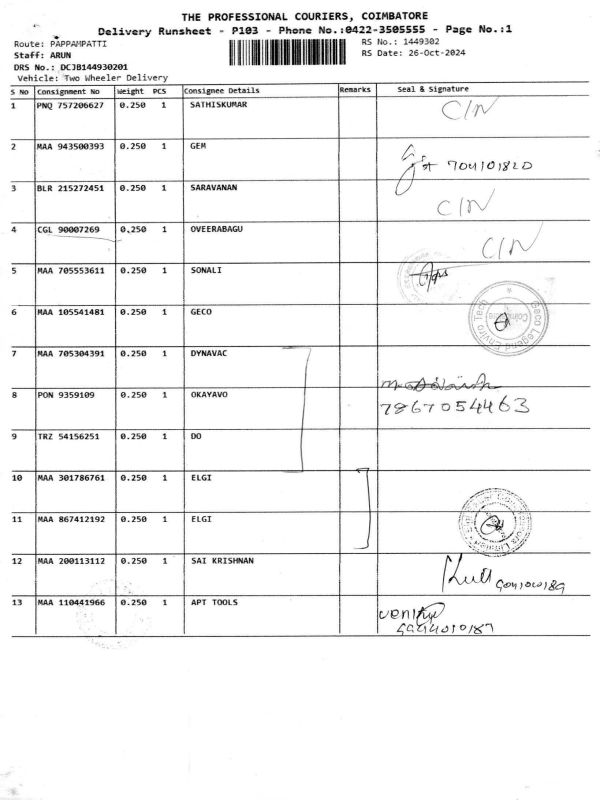 THE PROFESSIONAL COURIERS, COIMBATORE
Delivery Runsheet - P103 - Phone No.:0422-3505555 - Page No.:1
Route: PAPPAMPATTI
RS No.: 1449302
Staff: ARUN
RS Date: 26-Oct-2024
DRS No.: DCJB144930201
Vehicle: Two Wheeler Delivery
S No Consignment No Weight PCS Consignee Details Remarks Seal & Signature
1 PNQ 757206627 0.250 1 SATHISKUMAR C/N
2 MAA 943500393 0.250 1 GEM
3 BLR 215272451 0.250 1 SARAVANAN C/N
4 CGL 90007269 0.250 1 OVEERABAGU C/N
5 MAA 705553611 0.250 1 SONALI
6 MAA 105541481 0.250 1 GECO Geco Legend Enviro Tech
7 MAA 705304391 0.250 1 DYNAVAC
8 PON 9359109 0.250 1 OKAYAVO 7867054463
9 TRZ 54156251 0.250 1 DO
10 MAA 301786761 0.250 1 ELGI
11 MAA 867412192 0.250 1 ELGI
12 MAA 200113112 0.250 1 SAI KRISHNAN
13 MAA 110441966 0.250 1 APT TOOLS